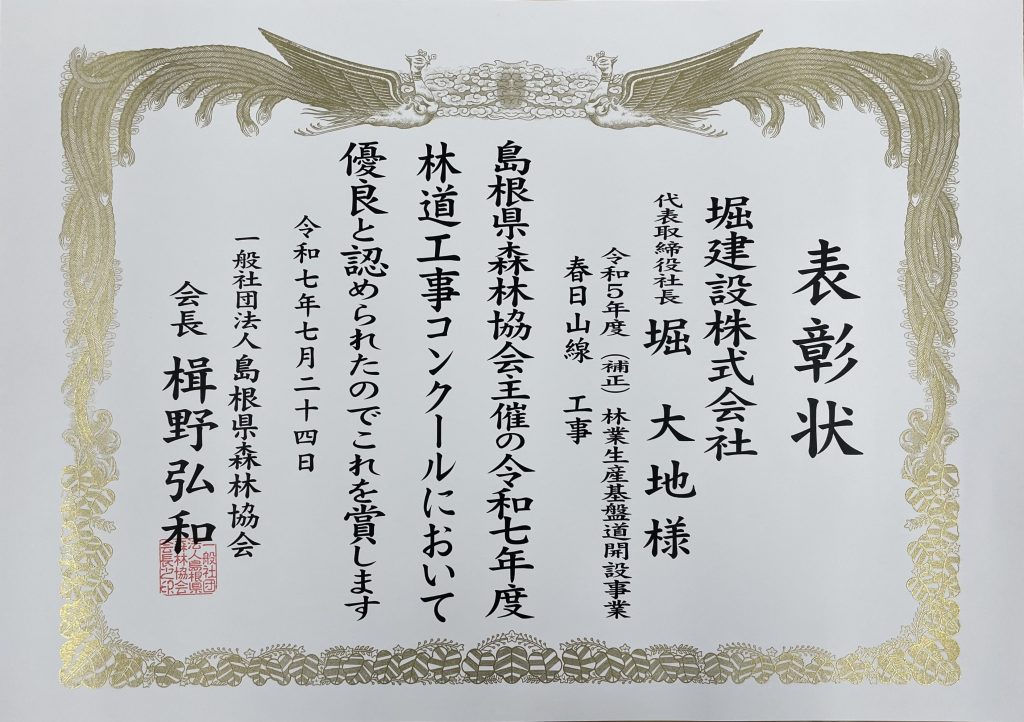 表彰状
堀建設株式会社
代表取締役社長 堀 大地 様
令和5年度（補正）林業生産基盤道開設事業
春日山線 工事
島根県森林協会主催の令和七年度
林道工事コンクールにおいて
優良と認められたのでこれを賞します
令和七年七月二十四日
一般社団法人 島根県森林協会
会長 楫野弘和
一般社団
法人島根県
森林協会
会長之印